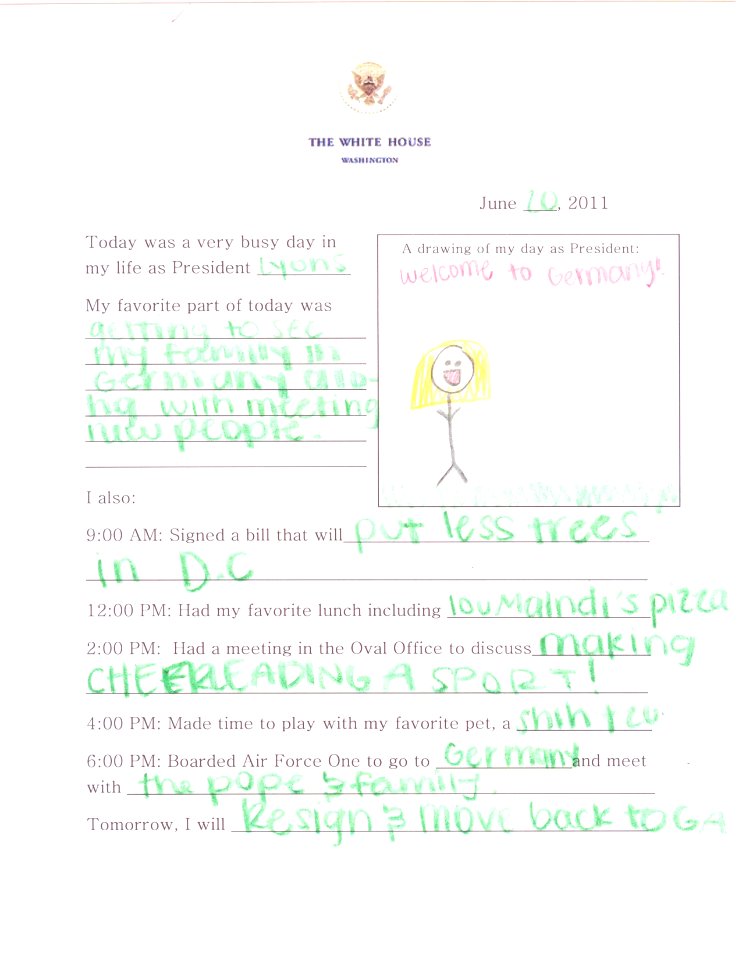 THE WHITE HOUSE
WASHINGTON
June 10, 2011
Today was a very busy day in
my life as President Lyons
My favorite part of today was
getting to see
my family in
Germany alo-
ng with meeting
new people.
A drawing of my day as President:
Welcome to Germany!
I also:
9:00 AM: Signed a bill that will put less trees
in D.C
12:00 PM: Had my favorite lunch including louMalndi's pizza
2:00 PM: Had a meeting in the Oval Office to discuss making
CHEERLEADING A SPORT!
4:00 PM: Made time to play with my favorite pet, a shih tzu.
6:00 PM: Boarded Air Force One to go to Germany and meet
with the pope & family.
Tomorrow, I will Resign & move back to GA